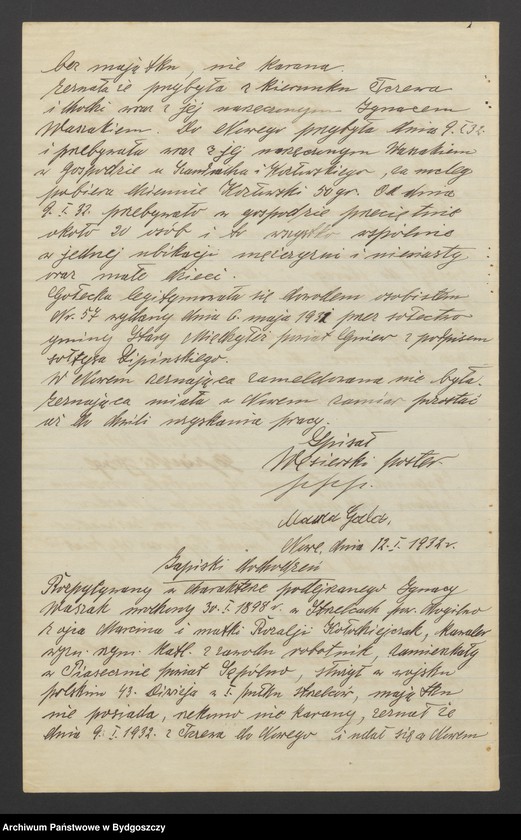 bez majątku, nie karana
zeznała że przybyła z kierunku Tczewa
i Chojki wraz z jej narzeczonym Ignacem
Waszakiem. Do Nowego przybyła dnia 9.I.32.
i przebywała wraz z jej narzeczonym Waszakiem
w gospodzie u i Kozłowskiego, za nocleg
pobiera dziennie Kozłowski 50 gr. Od dnia
9.I.32. przebywało w gospodzie przeciętnie
około 20 osób i to wszystko wspólnie
w jednej ubikacji mężczyźni i niewiasty
oraz małe dzieci.
Gołecka legitymowała się dowodem osobistem
Nr. 57 wydany dnia 6. maja 1931 przez sołectwo
gminy Stary Międzyłęż powiat Gniew z podpisem
sołtysa Lipińskiego.
W Nowem zeznająca zameldowana nie była.
Zeznająca miała w Nowem zamiar pozostać
aż do chwili uzyskania pracy.
Spisał
Wesierski poster.
p.p.p.
Nowe, dnia 12.I.1932 r.
Zapiski dochodzeń
Rozpytywany w charakterze podejrzanego Ignacy
Waszak urodzony 30.I.1898 r. w Strzelcach pow. Mogilno
z ojca Marcina i matki Rozalji Kołodziejczak, kawaler
wyzn. rzym. katl. z zawodu robotnik, zamieszkały
w Piasecznie powiat Sępólno, służył w wojsku
polskim 43. Dywizja w I. pułku strzelców, majątku
nie posiada, rzekomo nie karany, zeznał że
dnia 9.I.1932. z Tczewa do Nowego i udał się w Nowem
Archiwum Państwowe w Bydgoszczy